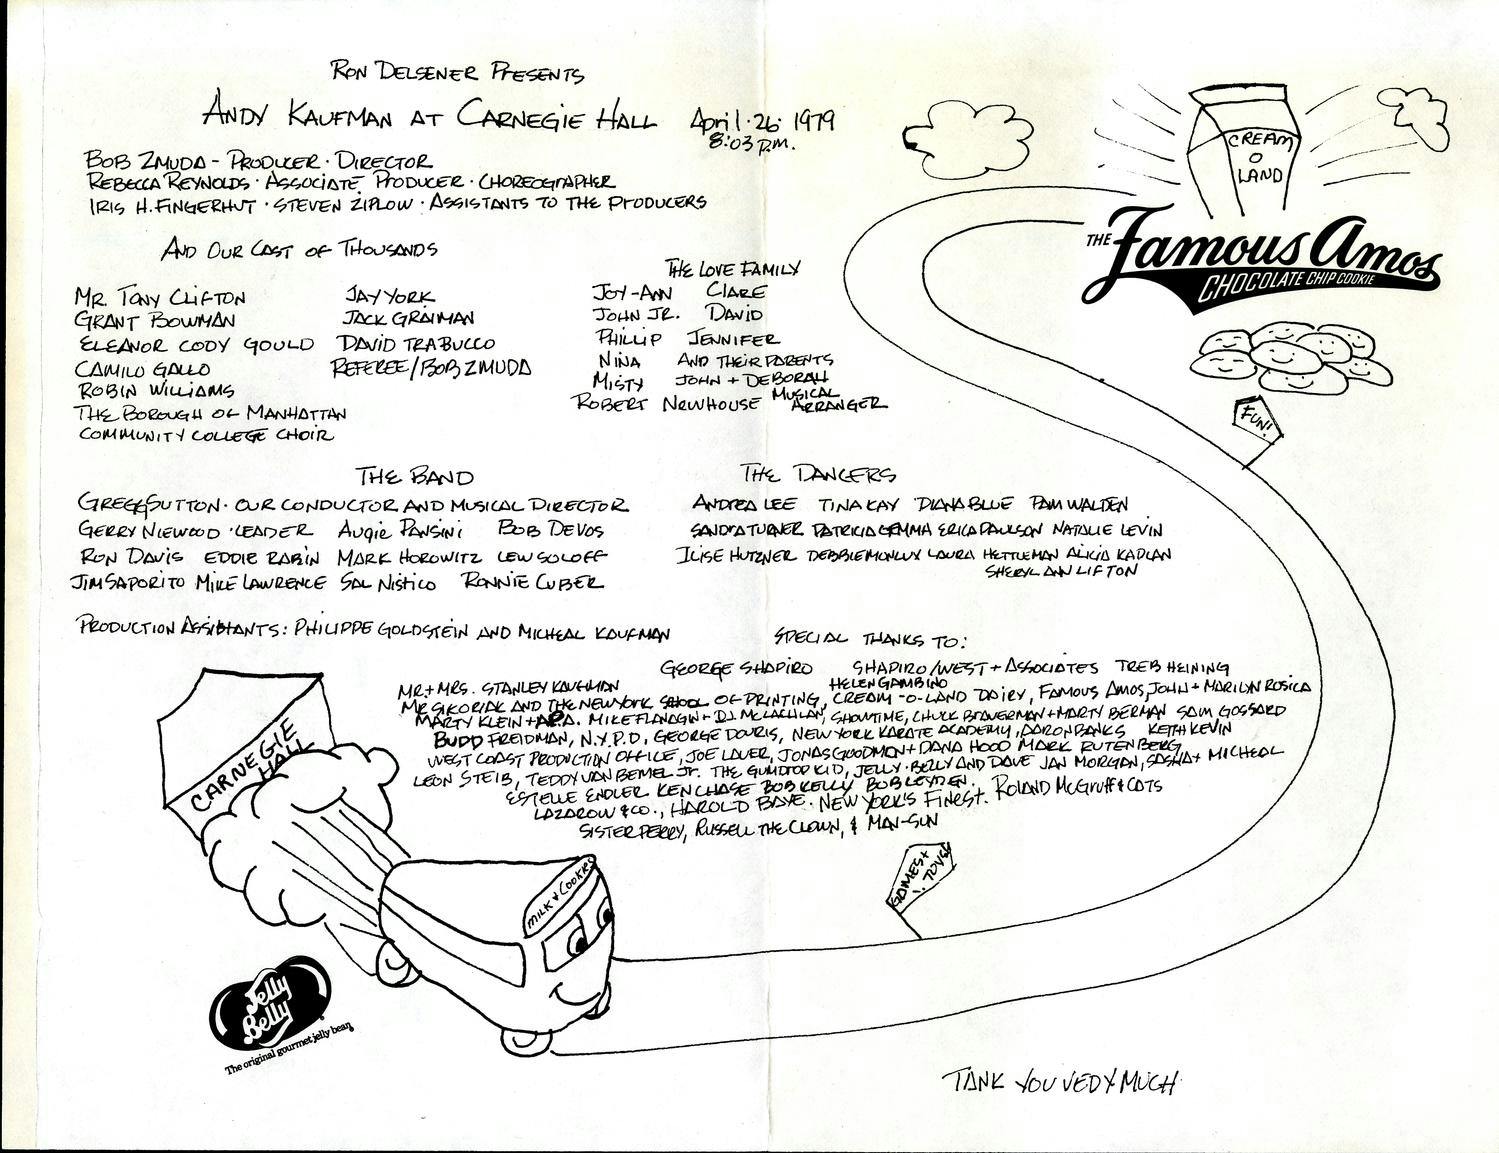 Ron Delsener Presents
Andy Kaufman at Carnegie Hall April 26 1979
8:03 P.M.
Bob Zmuda - Producer · Director
Rebecca Reynolds · Associate Producer · Choreographer
Iris H. Fingerhut · Steven Ziplow · Assistants to the Producers
And Our Cast of Thousands
Mr. Tony Clifton Jay York
Grant Bowman Jack Graiman
Eleanor Cody Gould David Trabucco
Camilo Gallo Referee/Bob Zmuda
Robin Williams
The Borough of Manhattan
Community College Choir
The Love Family
Joy-Ann Clare
John Jr. David
Phillip Jennifer
Nina and their parents
Misty John + Deborah
Robert Newhouse Musical Arranger
The Band
Gregg Sutton · Our Conductor and Musical Director
Gerry Niewood · Leader Augie Pansini Bob Devos
Ron Davis Eddie Rabin Mark Horowitz Lew Soloff
Jim Saporito Mike Lawrence Sal Nistico Ronnie Cuber
The Dancers
Andrea Lee Tina Kay Diana Blue Pam Walden
Sandra Turner Patricia Gemma Erica Paulson Natalie Levin
Ilise Hutzner Debbie Monlux Laura Hettleman Alicia Kaplan
Sheryl Ann Lifton
Production Assistants: Philippe Goldstein and Micheal Kaufman
Special Thanks To:
George Shapiro Shapiro/West + Associates Treb Heining
Mr + Mrs. Stanley Kaufman Helen Gambino
Mr Sikoriak and the New York School of Printing, Cream-O-Land Dairy, Famous Amos, John + Marilyn Rosica
Marty Klein + A.P.A. Mike Flanagin + D.J. McLachlan, Showtime, Chuck Braverman + Marty Berman Sam Gossard
Budd Freidman, N.Y.P.D, George Douris, New York Karate Academy, Aaron Banks Keith Kevin
West Coast Production Office, Joe Lauer, Jonas Goodman + Dana Hood Mark Rutenberg
Leon Steib, Teddy Van Bemel Jr. The Gumdrop Kid, Jelly-Belly and Dave Jan Morgan, Sasha + Micheal
Estelle Endler Ken Chase Bob Kelly Bob Leyden.
Lazarow & Co., Harold Baye. New York's Finest. Roland McGruff & Cats
Sister Perry, Russell the Clown, & Mai-Sun
CREAM
O
LAND
THE Famous Amos
CHOCOLATE CHIP COOKIE
FUN!
GAMES +
TOYS!
CARNEGIE
HALL
MILK & COOKIES
Jelly
Belly
The original gourmet jelly bean
Tank You Vedy Much